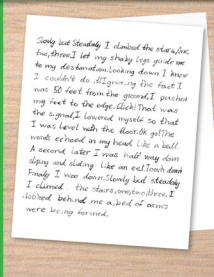 Slowly but Steadily I climbed the stairs,One,
two,three.I let my shaky legs guide me
to my destanation.Looking down I knew
I couldn't do it!Ignoring the fact I
was 50 feet from the ground,I pushed
my feet to the edge.Click!That was
the signal,I lowered myself so that
I was level with the floor.Ok go!The
words echoed in my head like a bell.
A second later I was half way down
slipping and sliding like an eel.
Finaly I was down.Slowly but steadaly
I climed the stairs,one,two,three.I
looked behind me a,bed of arms
were being formed.